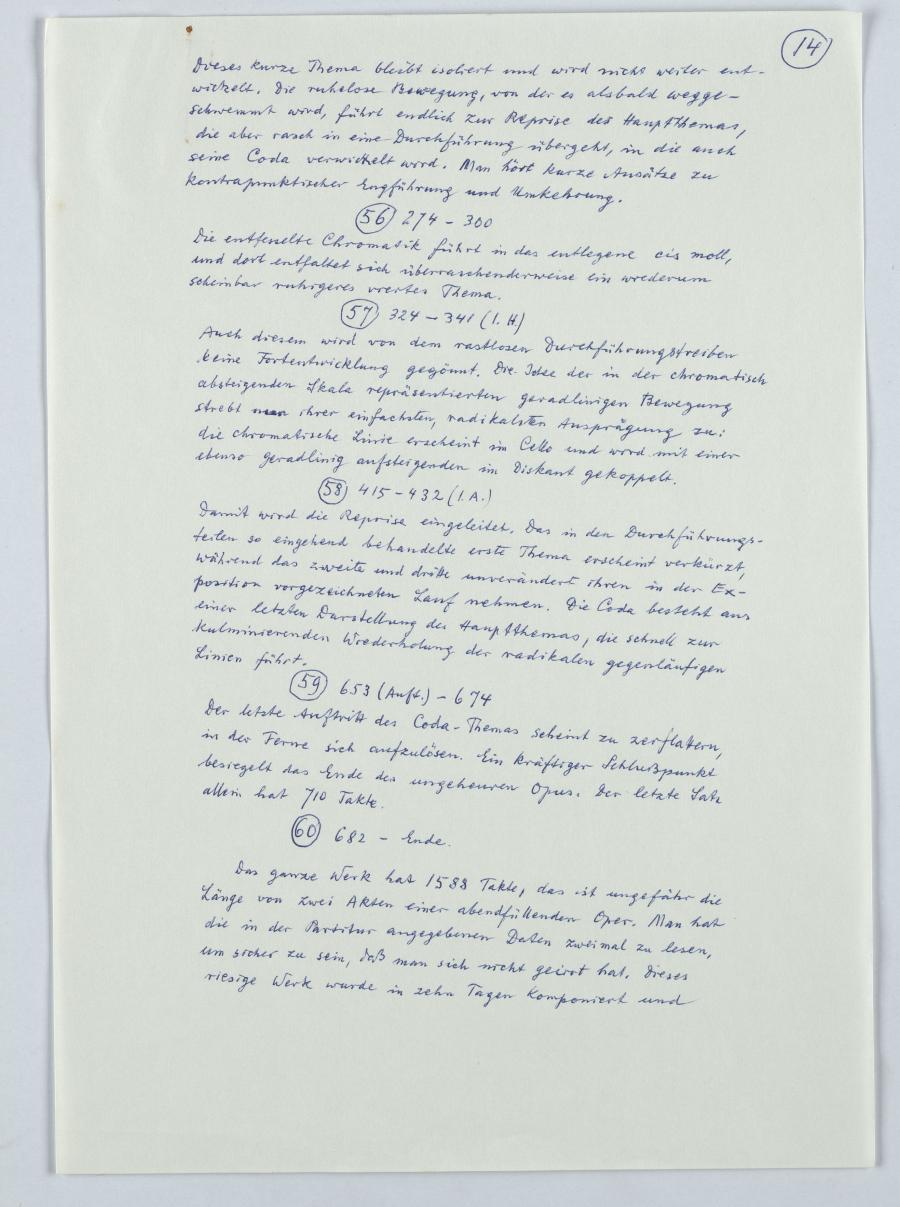 14
Dieses kurze Thema bleibt isoliert und wird nicht weiter ent-
wickelt. Die ruhelose Bewegung, von der es alsbald wegge-
schwemmt wird, führt endlich zur Reprise des Hauptthemas,
die aber rasch in eine Durchführung übergeht, in die auch
seine Coda verwickelt wird. Man hört kurze Ansätze zu
kontrapunktischer Engführung und Umkehrung.
56 274 – 300
Die entfesselte Chromatik führt in das entlegene cis moll,
und dort entfaltet sich überraschenderweise ein wiederum
scheinbar ruhigeres viertes Thema.
57 324 – 341 (I. H.)
Auch diesem wird von dem rastlosen Durchführungstreiben
keine Fortentwicklung gegönnt. Die Idee der in der chromatisch
absteigenden Skala repräsentierten geradlinigen Bewegung
strebt nun ihrer einfachsten, radikalsten Ausprägung zu:
die chromatische Linie erscheint im Cello und wird mit einer
ebenso geradlinig aufsteigenden im Diskant gekoppelt.
58 415 – 432 (I. A.)
Damit wird die Reprise eingeleitet. Das in den Durchführungs-
teilen so eingehend behandelte erste Thema erscheint verkürzt,
während das zweite und dritte unverändert ihren in der Ex-
position vorgezeichneten Lauf nehmen. Die Coda besteht aus
einer letzten Darstellung des Hauptthemas, die schnell zur
kulminierenden Wiederholung der radikalen gegenläufigen
Linien führt.
59 653 (Auft.) – 674
Der letzte Auftritt des Coda-Themas scheint zu zerflattern,
in der Ferne sich aufzulösen. Ein kräftiger Schlußpunkt
besiegelt das Ende des ungeheuren Opus. Der letzte Satz
allein hat 710 Takte.
60 682 – Ende.
Das ganze Werk hat 1588 Takte, das ist ungefähr die
Länge von zwei Akten einer abendfüllenden Oper. Man hat
die in der Partitur angegebenen Daten zweimal zu lesen,
um sicher zu sein, daß man sich nicht geirrt hat. Dieses
riesige Werk wurde in zehn Tagen komponiert und